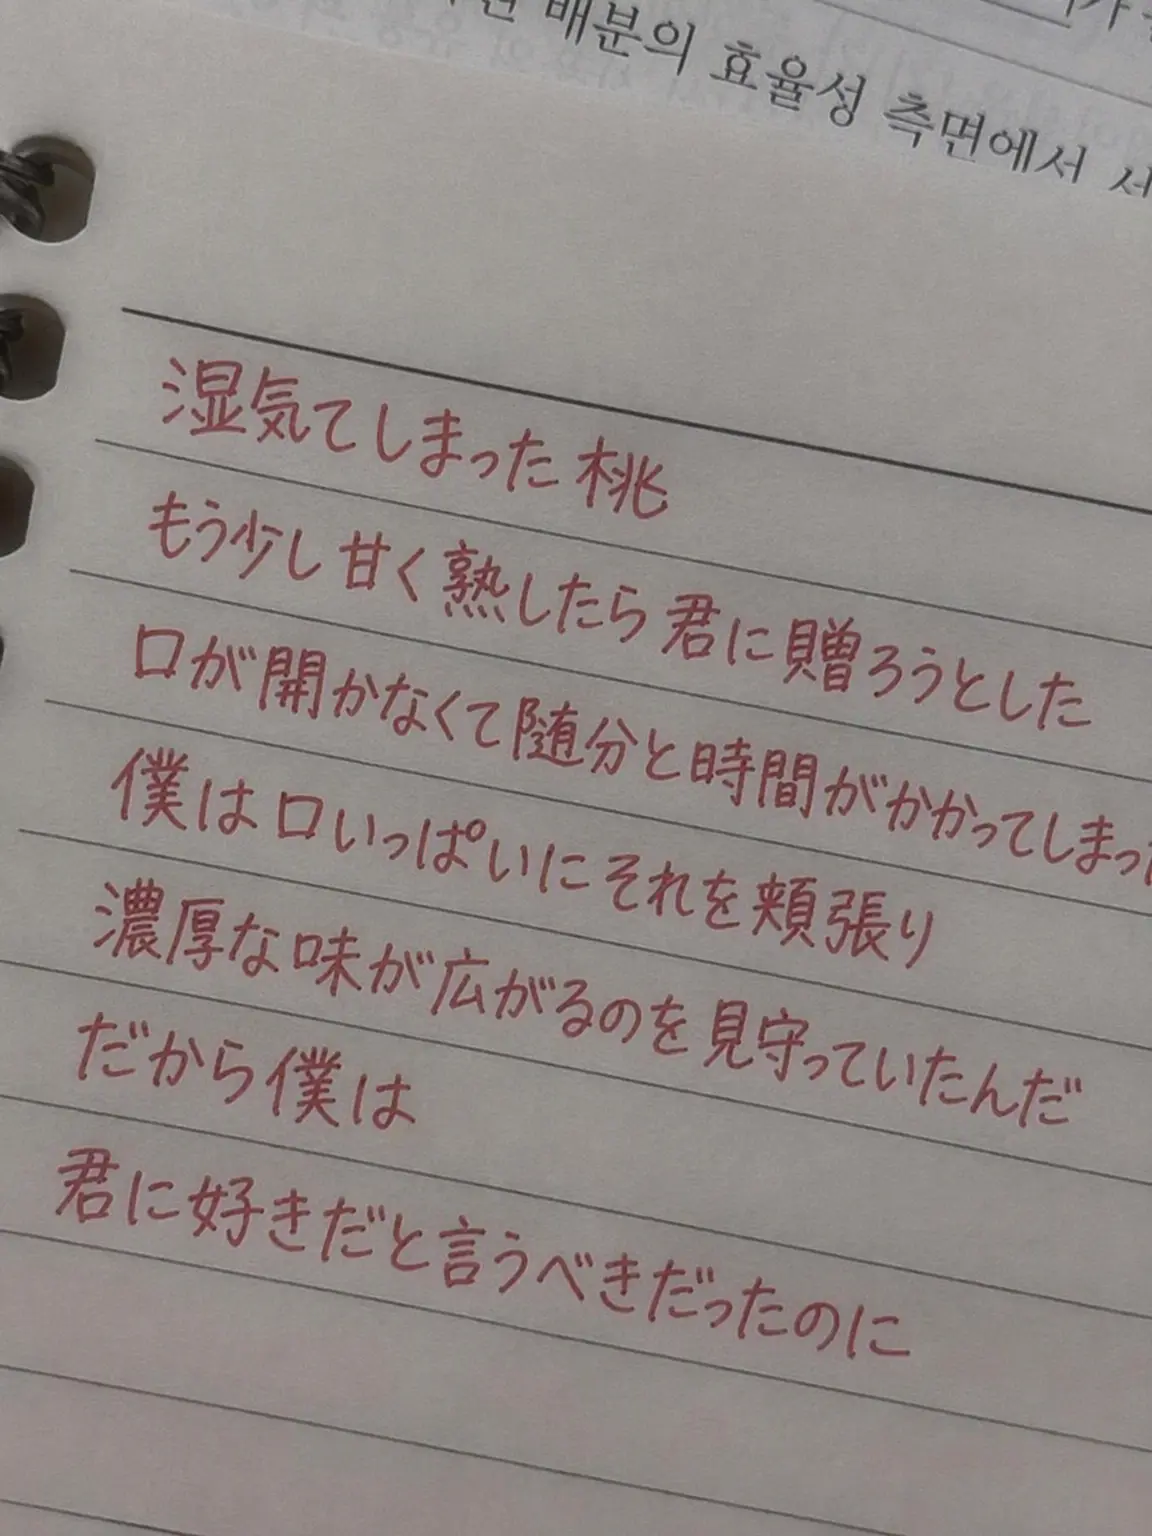 배분의 효율성 측면에서
湿気てしまった桃
もう少し甘く熟したら君に贈ろうとした
口が開かなくて随分と時間がかかってしまっ
僕は口いっぱいにそれを頬張り
濃厚な味が広がるのを見守っていたんだ
だから僕は
君に好きだと言うべきだったのに